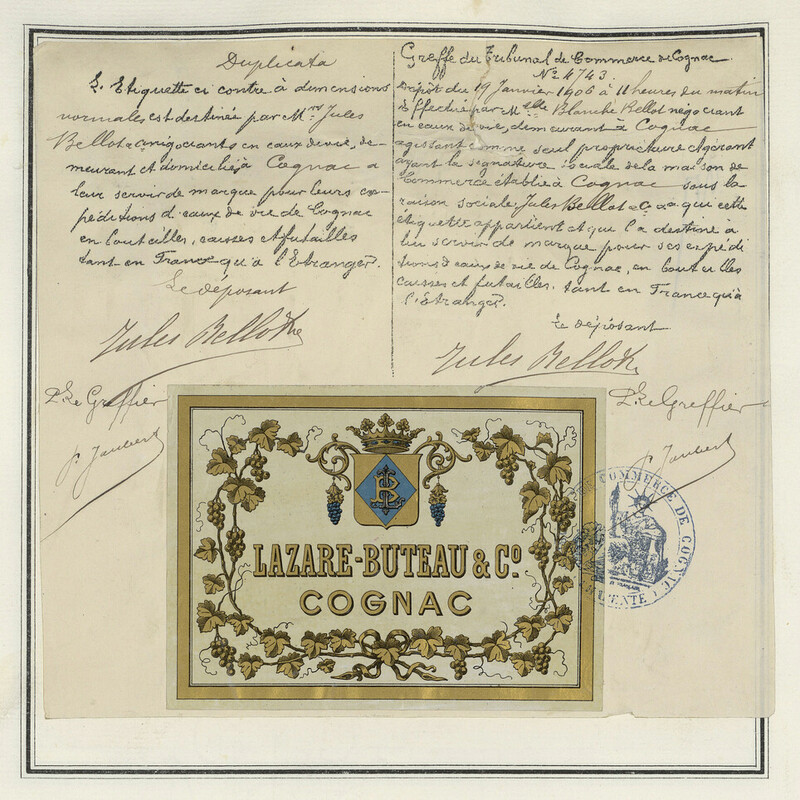 Duplicata
L'Etiquette ci contre à dimensions
normales est destinée par Mrs Jules
Bellot & Co négociants en eaux de vie, de-
meurant et domiciliés à Cognac a
leur servir de marque pour leurs ex-
péditions d'eaux de vie de Cognac
en bouteilles, caisses et futailles
tant en France qu'à l'Etranger.
Le déposant
Jules Bellot & Co
Pr Le Greffier
J. Jaubert
Greffe du Tribunal de Commerce de Cognac.
No 4743.
Dépôt du 19 Janvier 1906 à 11 heures du matin
Effectué par Melle Blanche Bellot négociant
en eaux de vie, demeurant à Cognac
agissant comme seul propriétaire et gérant
ayant la signature sociale de la maison de
Commerce établie à Cognac sous la
raison sociale Jules Bellot & Co à qui cette
étiquette appartient et qui l'a destiné à
lui servir de marque pour ses expédi
tions d'eaux de vie de Cognac, en bouteilles
caisses et futailles, tant en France qu'à
l'Etranger.
Le déposant
Jules Bellot & Co
Pr Le Greffier
J. Jaubert
LAZARE-BUTEAU & Co.
COGNAC
COMMERCE DE COGNAC